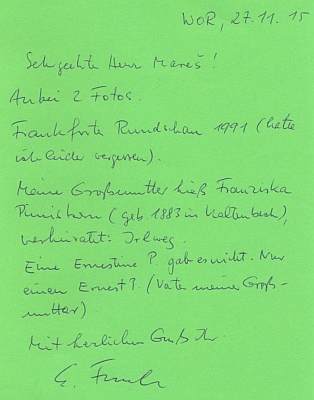 WOR, 27.11.15
Sehr geehrter Herr Mareš!
Anbei 2 Fotos.
Frankfurter Rundschau 1991 (hatte
ich leider vergessen).
Meine Großmutter hieß Franziska
(geb. 1883 in Kaltenbach),
verheiratet:
Eine Ernestine P. gab es nicht. Nur
einen Ernest P. (Vater meiner Groß-
mutter)
Mit herzlichem Gruß Ihr
E.